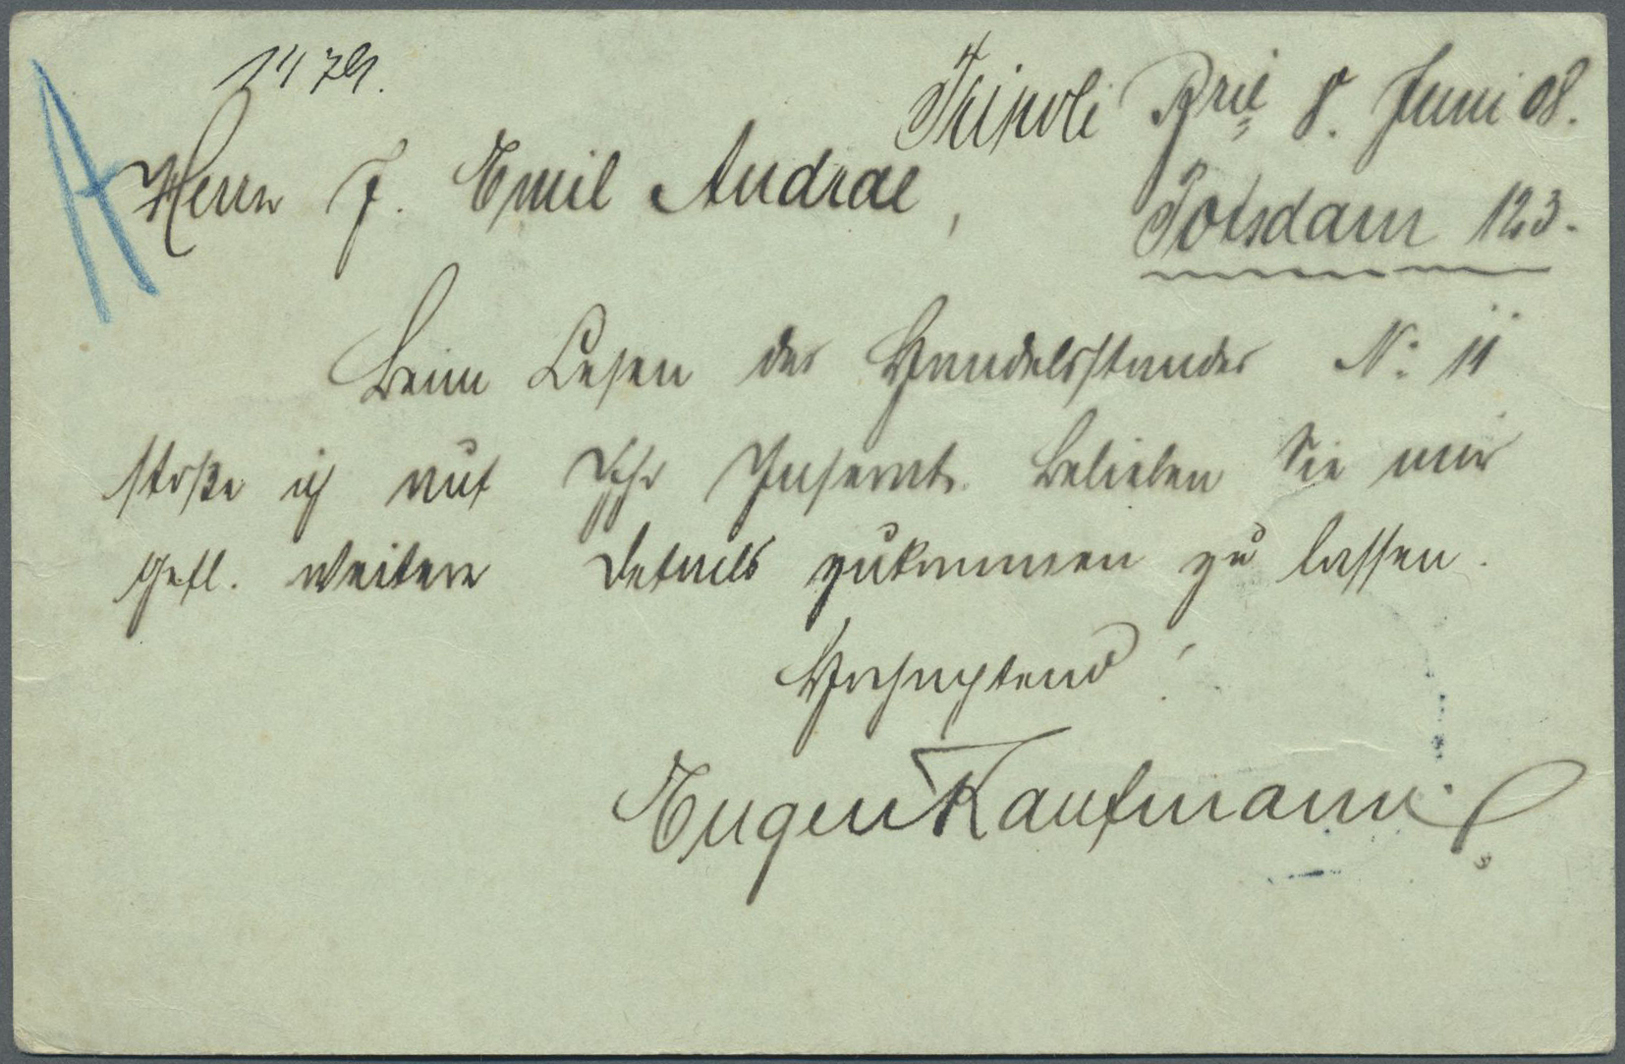 A
Tripoli Brie 8. Juni 08.
Herrn J. Emil Andrae,
Potsdam 123.
Beim Lesen des Handelsstandes N: 11
stoße ich auf Ihr Inserat. Belieben Sie mir
gefl. weitere Details zukommen zu lassen.
Hochachtend!
Eugen Kaufmann